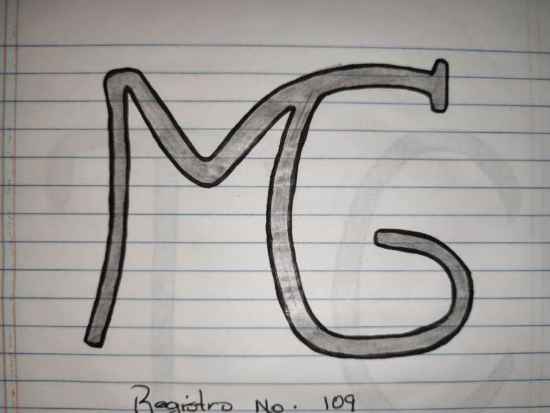 MG
Registro No. 109